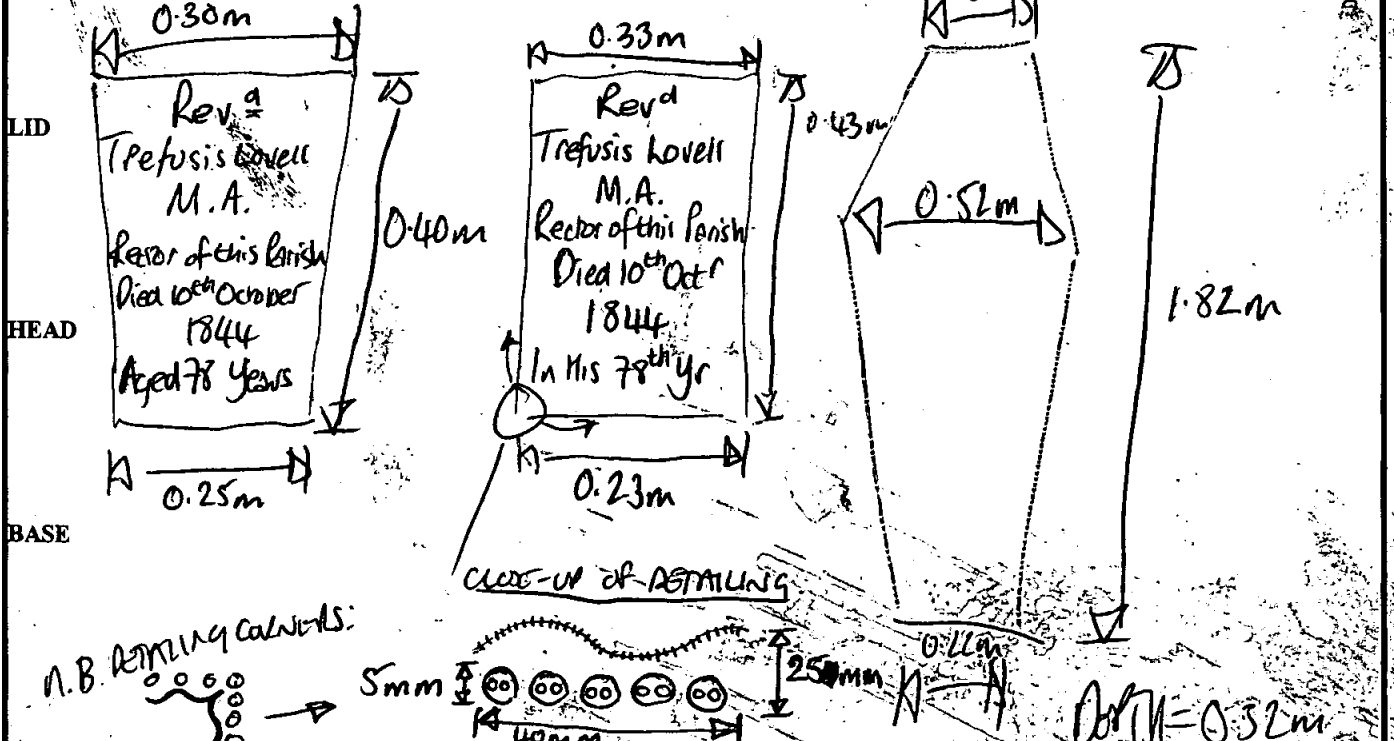 0.30m
LID
HEAD
BASE
Rev.d
Trefusis Lovell
M.A.
Rector of this Parish
Died 10th October
1844
Aged 78 Years
0.40m
0.25m
0.33m
Revd
Trefusis Lovell
M.A.
Rector of this Parish
Died 10th Octr
1844
In His 78th Yr
0.23m
0.43m
0.52m
1.82m
CLOSE-UP OF DETAILING
N.B. DETAILING CORNERS:
5mm
40mm
Depth=0.32m